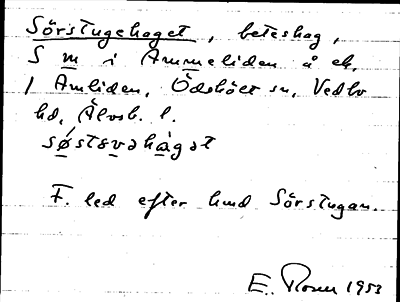 Sörstugehaget, beteshag,
S m i Ammeliden å ek.
/ Amliden, Ödskölt sn, Vedbo
hd, Älvsb. l.
søstɞvəhàgət
F. led efter hmd Sörstugan.
E. Rosell 1953